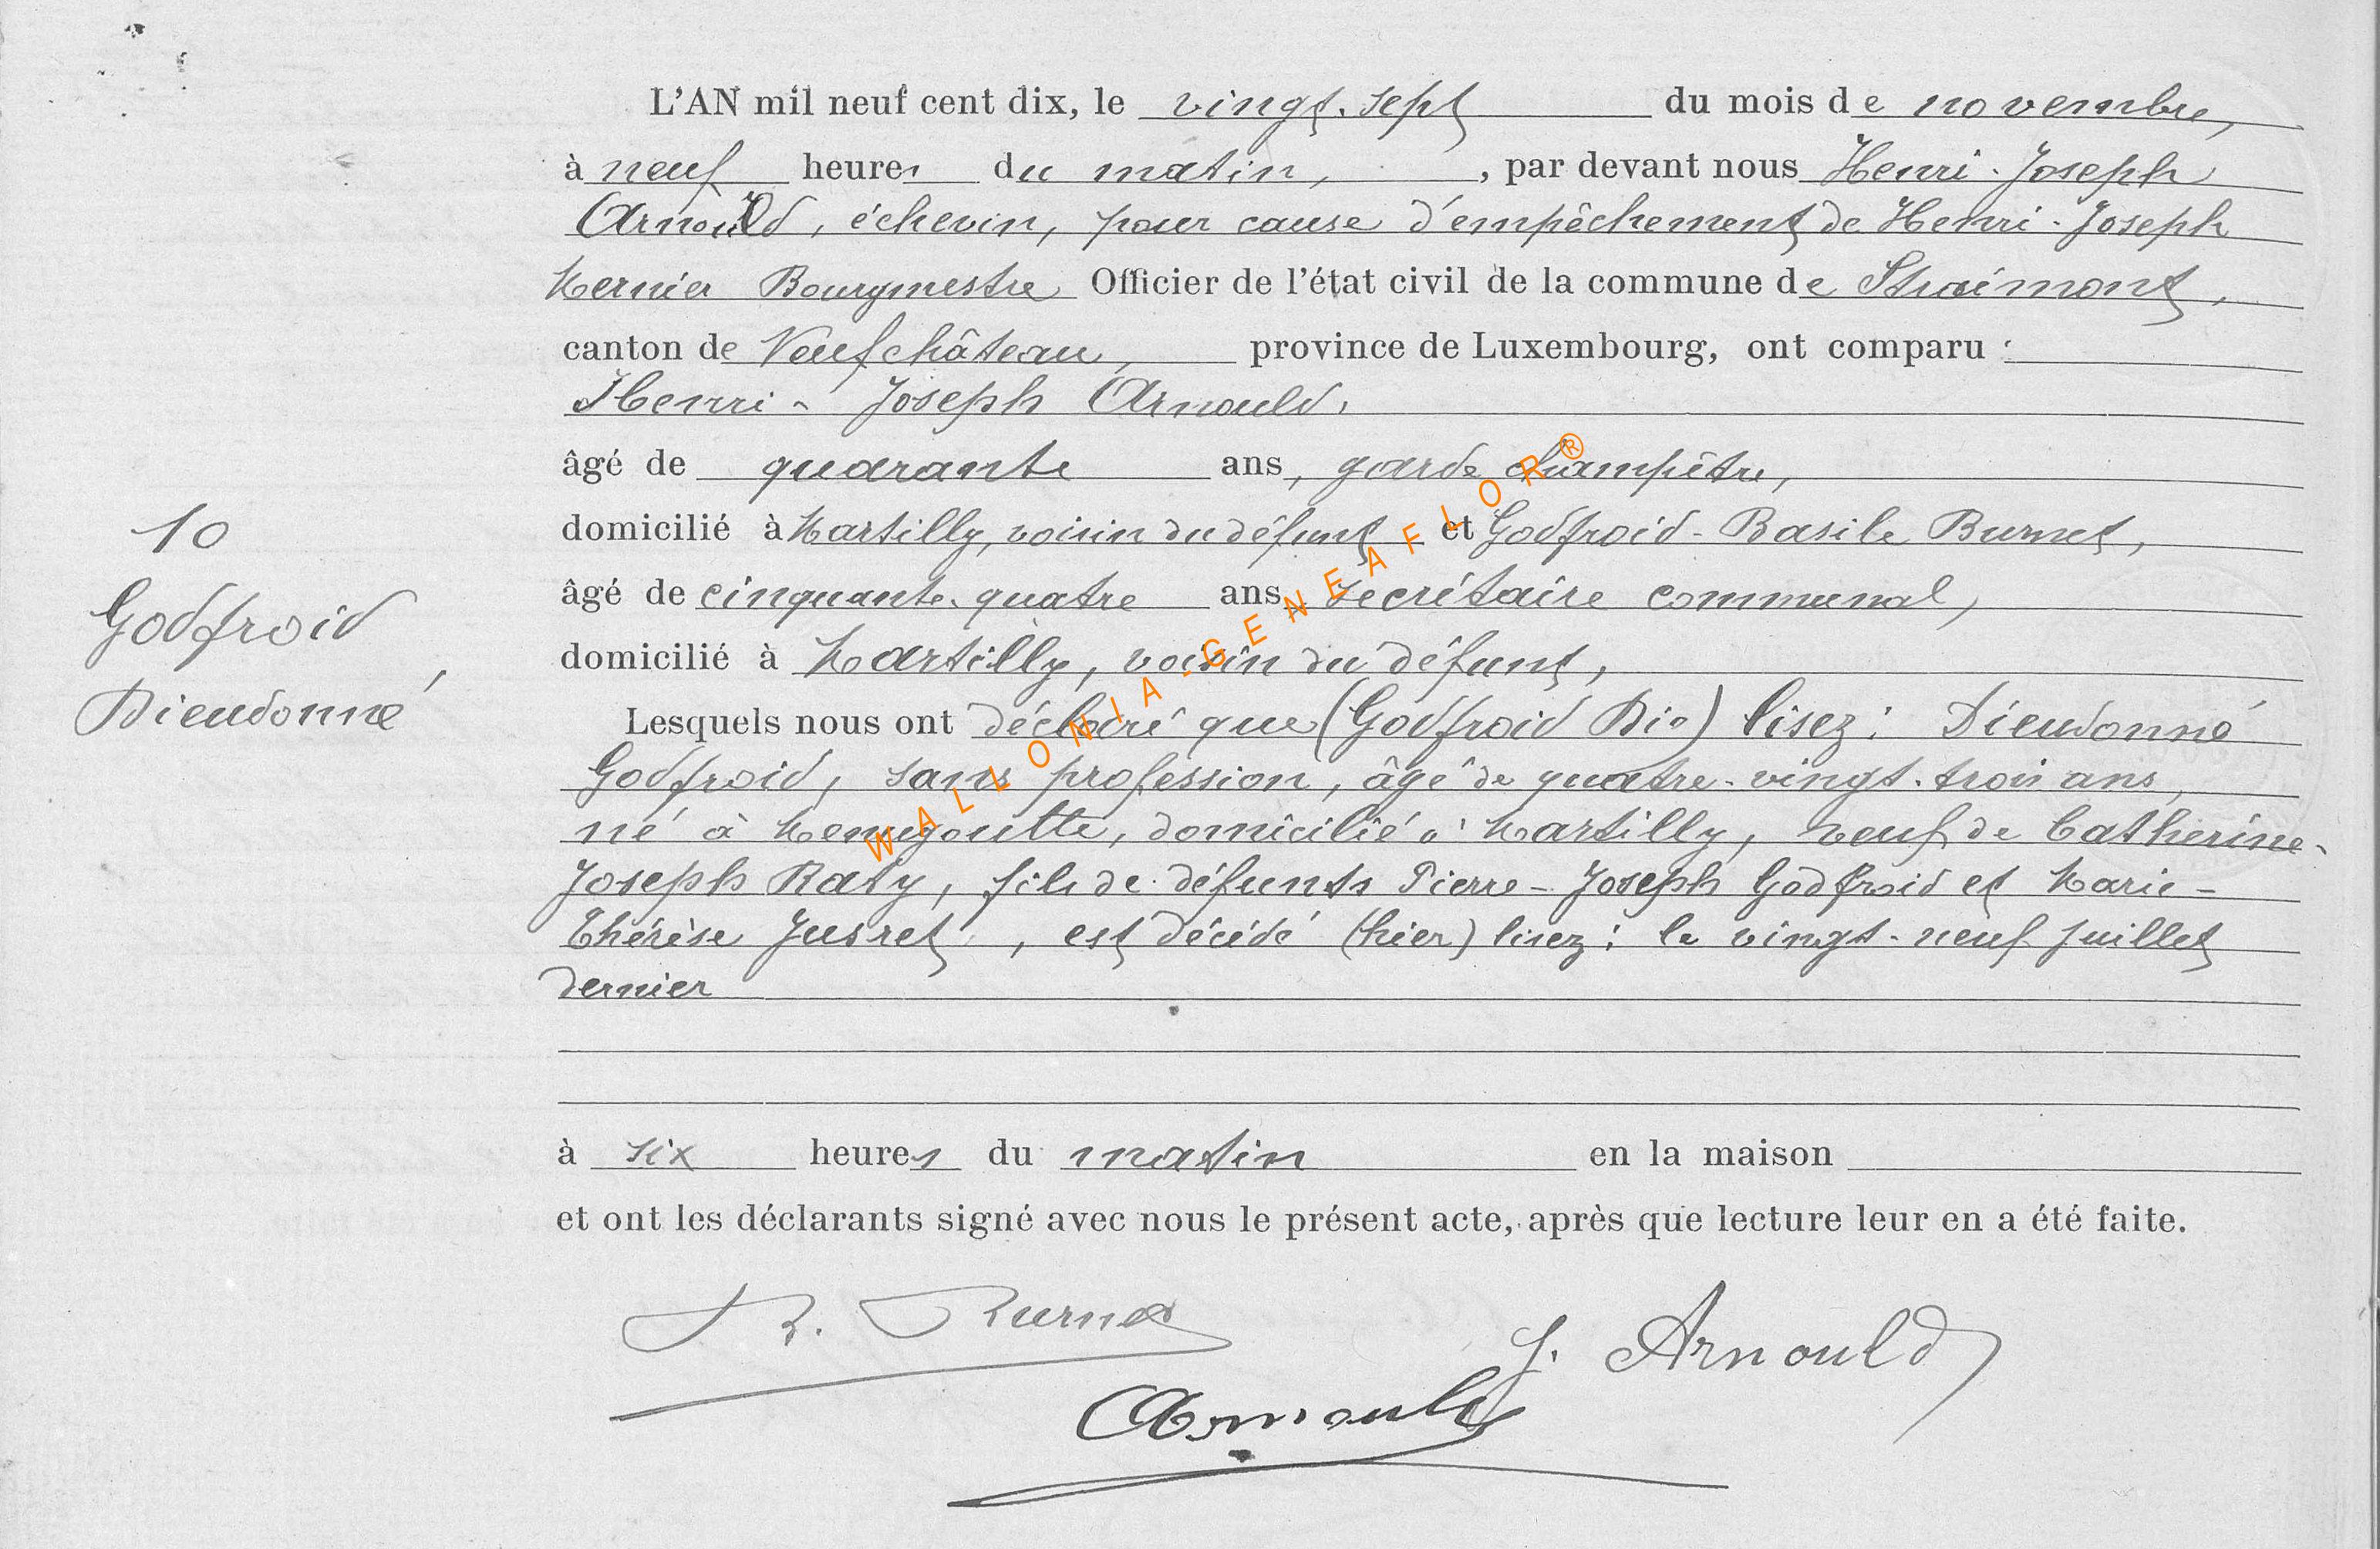 L'AN mil neuf cent dix, le vingt-sept du mois de novembre,
à neuf heures du matin, , par devant nous Henri-Joseph
Arnould, échevin, pour cause d'empêchement de Henri-Joseph
Mernier Bourgmestre Officier de l'état civil de la commune de Straimont,
canton de Neufchâteau, province de Luxembourg, ont comparu :
Henri-Joseph Arnould,
âgé de quarante ans, garde champêtre,
domicilié à Martilly, voisin du défunt et Godfroid-Basile Burnet,
âgé de cinquante-quatre ans, secrétaire communal,
domicilié à Martilly, voisin du défunt,
Lesquels nous ont déclaré que (Godfroid Die) lisez: Dieudonné
Godfroid, sans profession, âgé de quatre-vingt-trois ans,
né à Menugoutte, domicilié à Martilly, veuf de Catherine-
Joseph Raty, fils de défunts Pierre-Joseph Godfroid et Marie-
Thérèse Jusret, est décédé (hier) lisez: le vingt-neuf juillet
dernier
à six heures du matin en la maison
et ont les déclarants signé avec nous le présent acte, après que lecture leur en a été faite.
10
Godfroid,
Dieudonné
B. Burnet
J. Arnould
Arnould
WALLONIA-GENEAFLOR®